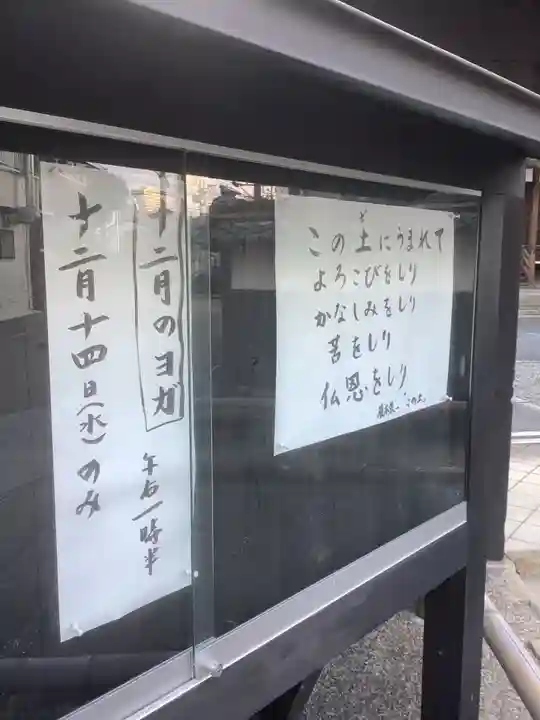 十二月のヨガ
午后一時半
十二月十四日(水)のみ
この土にうまれて
ど
よろこびをしり
かなしみをしり
苦をしり
仏恩をしり